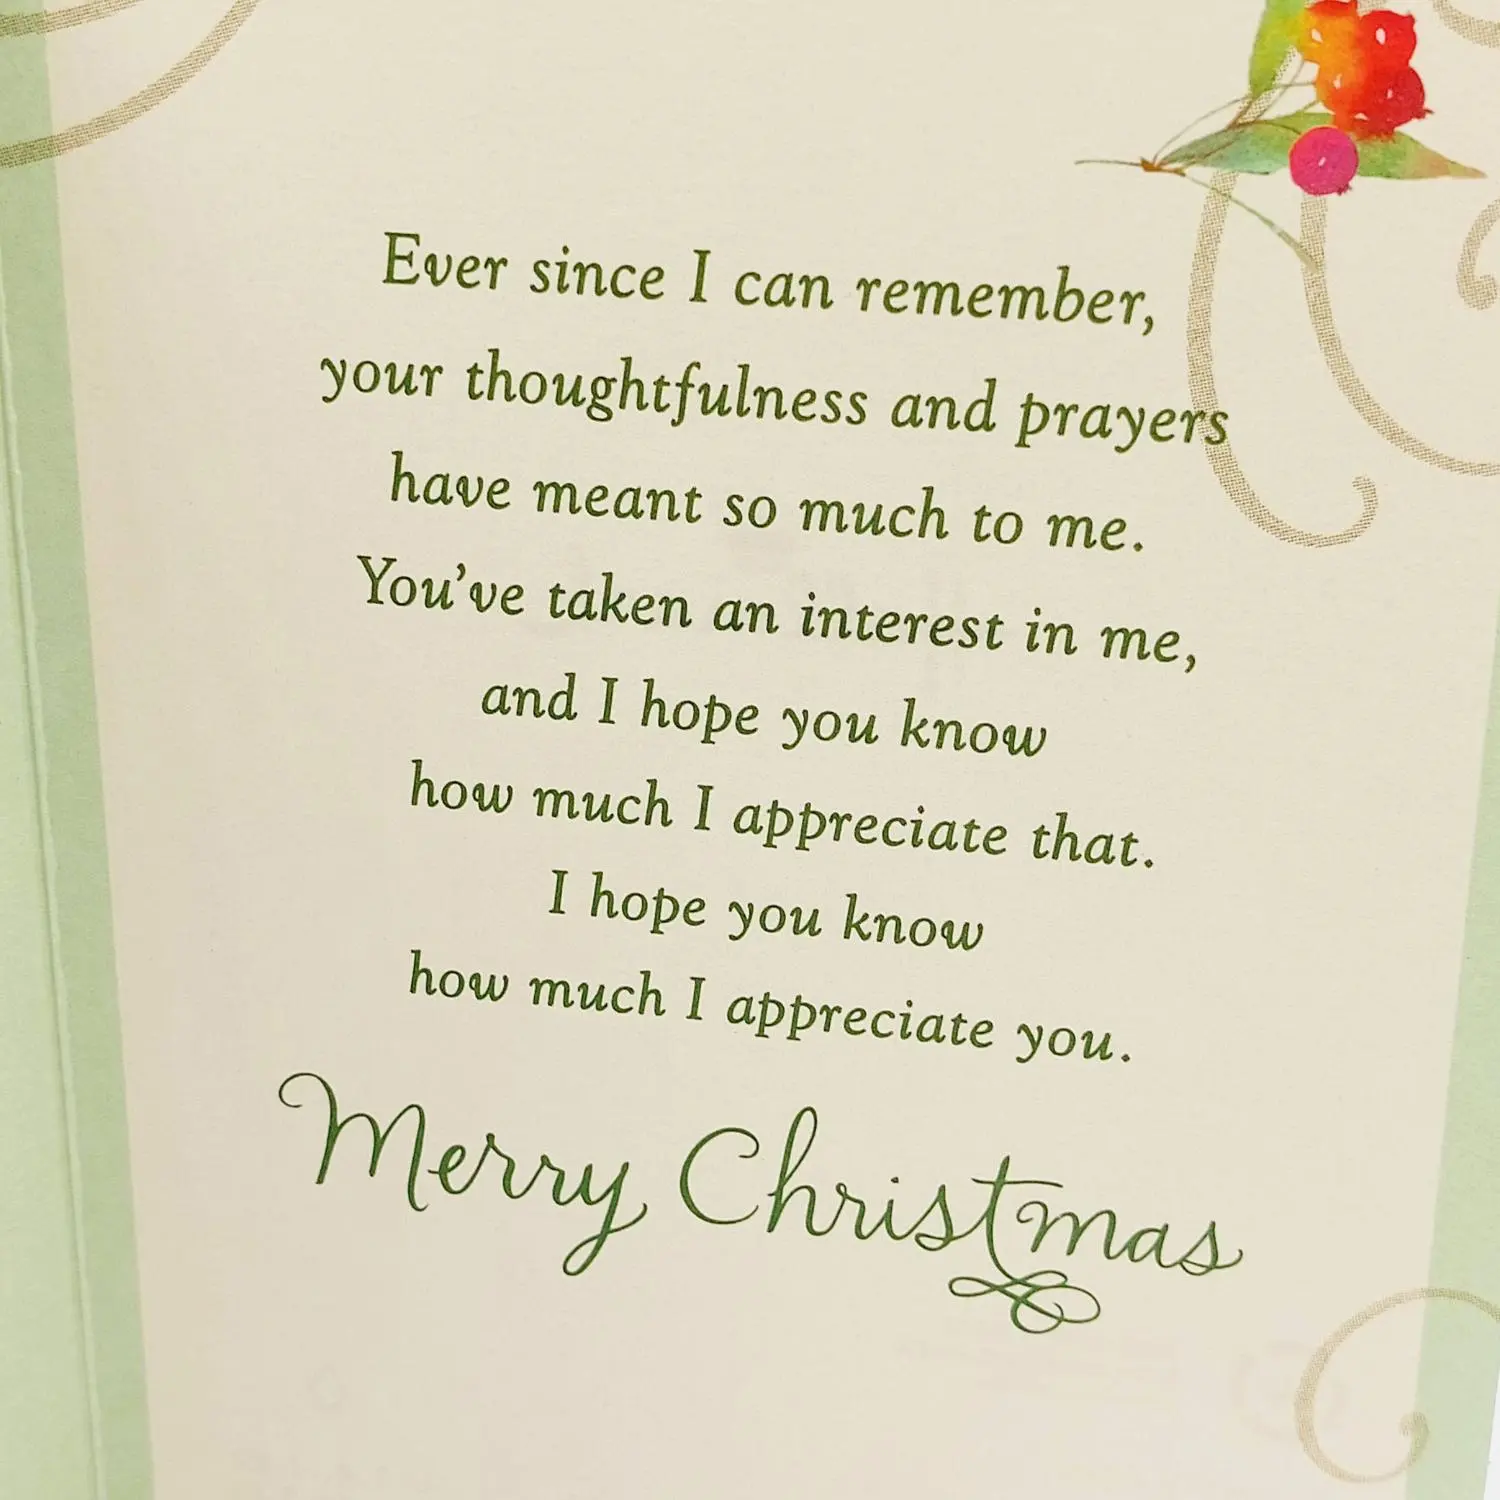 Ever since I can remember,
your thoughtfulness and prayers
have meant so much to me.
You've taken an interest in me,
and I hope you know
how much I appreciate that.
I hope you know
how much I appreciate you.
Merry Christmas